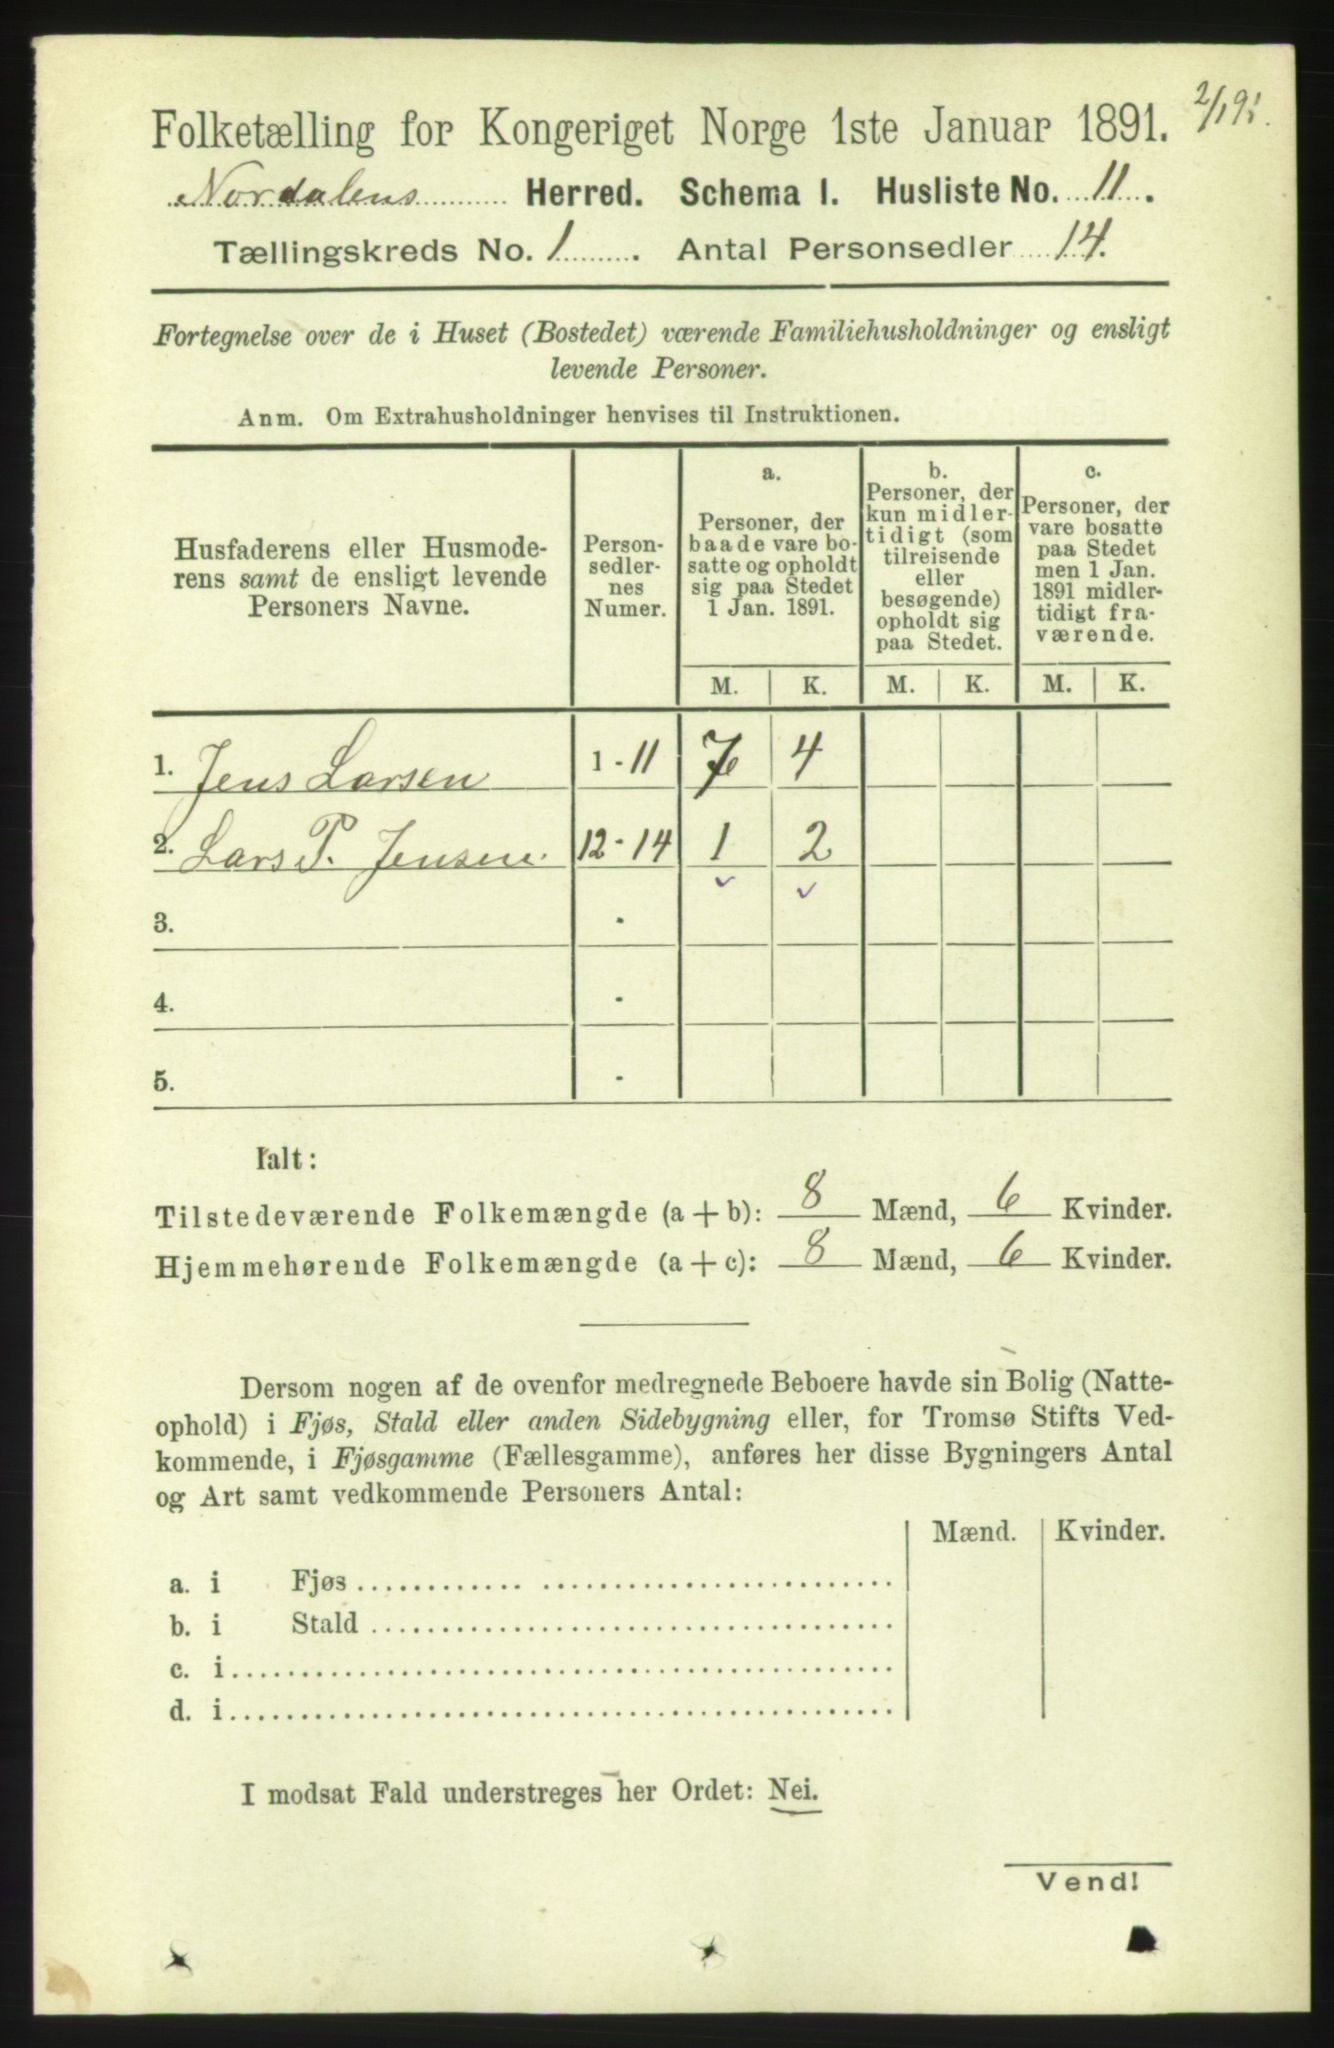 2/1 91.
Folketælling for Kongeriget Norge 1ste Januar 1891.
Nordalens Herred. Schema I. Husliste No. 11.
Tællingskreds No. 1. Antal Personsedler 14.
Fortegnelse over de i Huset (Bostedet) værende Familiehusholdninger og ensligt
levende Personer.
Anm. Om Extrahusholdninger henvises til Instruktionen.
Husfaderens eller Husmode-
rens samt de ensligt levende
Personers Navne.
Person-
sedler-
nes
Numer.
a.
Personer, der
baade vare bo-
satte og opholdt
sig paa Stedet
1 Jan. 1891.
b.
Personer, der
kun midler-
tidigt (som
tilreisende
eller
besøgende)
opholdt sig
paa Stedet.
c.
Personer, der
vare bosatte
paa Stedet
men 1 Jan.
1891 midler-
tidigt fra-
værende.
M. K. M. K. M. K.
1. Jens Larsen 1-11 7 4
2. Lars P. Jensen. 12-14 1 2
3. -
4. -
5. -
Ialt:
Tilstedeværende Folkemængde (a + b): 8 Mænd, 6 Kvinder.
Hjemmehørende Folkemængde (a + c): 8 Mænd, 6 Kvinder.
Dersom nogen af de ovenfor medregnede Beboere havde sin Bolig (Natte-
ophold) i Fjøs, Stald eller anden Sidebygning eller, for Tromsø Stifts Ved-
kommende, i Fjøsgamme (Fællesgamme), anføres her disse Bygningers Antal
og Art samt vedkommende Personers Antal:
Mænd. Kvinder.
a. i Fjøs
b. i Stald
c. i
d. i
I modsat Fald understreges her Ordet: Nei.
Vend!